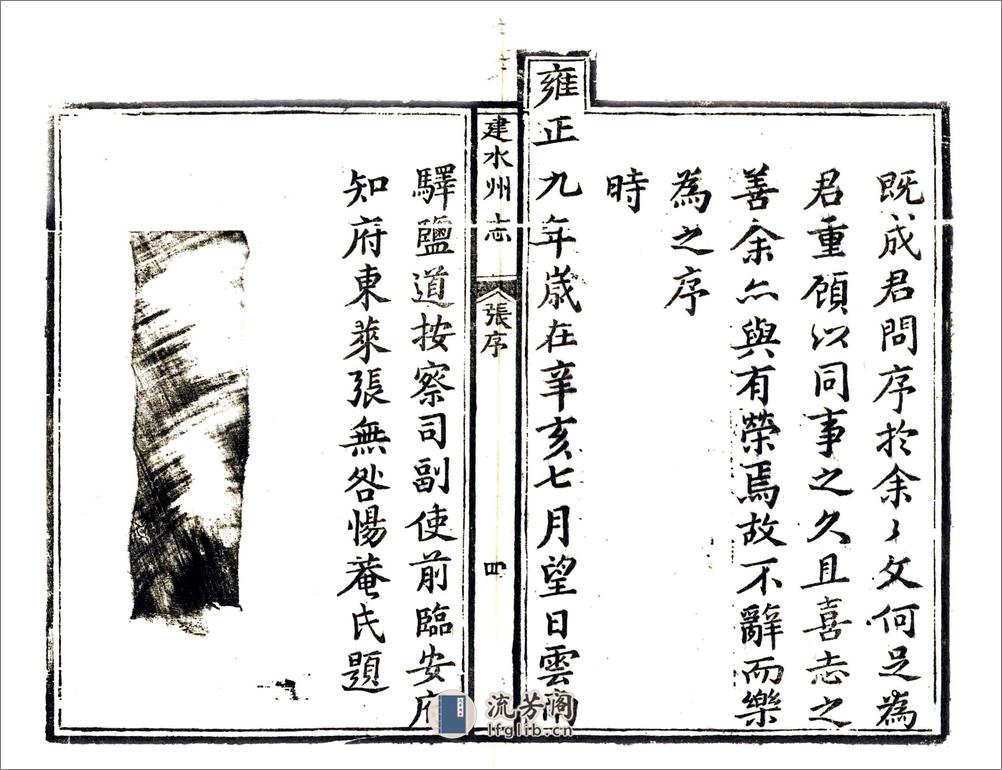 既成君問序於余〻文何足為
君重顧以同事之久且喜志之
善余亦與有榮焉故不辭而樂
為之序
時
雍正九年歲在辛亥七月望日雲南
建水州志
張序
四
驛鹽道按察司副使前臨安府
知府東萊張無咎惕菴氏題
流芳阁
lfglib.cn